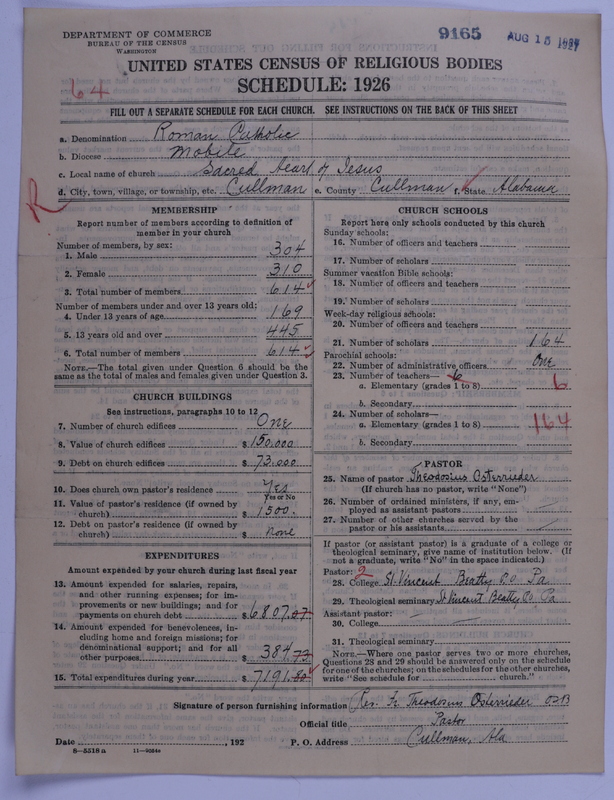 DEPARTMENT OF COMMERCE
BUREAU OF THE CENSUS
WASHINGTON
9165
AUG 15 1927
UNITED STATES CENSUS OF RELIGIOUS BODIES
SCHEDULE: 1926
64
FILL OUT A SEPARATE SCHEDULE FOR EACH CHURCH. SEE INSTRUCTIONS ON THE BACK OF THIS SHEET
a. Denomination Roman Catholic
b. Diocese Mobile
c. Local name of church Sacred Heart of Jesus
d. City, town, village, or township, etc. Cullman e. County Cullman f. State Alabama
R
MEMBERSHIP
Report number of members according to definition of
member in your church
Number of members, by sex:
1. Male 304
2. Female 310
3. Total number of members 614
Number of members under and over 13 years old:
4. Under 13 years of age 169
5. 13 years old and over 445
6. Total number of members 614
NOTE.—The total given under Question 6 should be the
same as the total of males and females given under Question 3.
CHURCH BUILDINGS
See instructions, paragraphs 10 to 12
7. Number of church edifices One
8. Value of church edifices $150.000
9. Debt on church edifices $73.000
10. Does church own pastor's residence Yes
Yes or No
11. Value of pastor's residence (if owned by
church) $1500.
12. Debt on pastor's residence (if owned by
church) $ none
EXPENDITURES
Amount expended by your church during last fiscal year
13. Amount expended for salaries, repairs,
and other running expenses; for im-
provements or new buildings; and for
payments on church debt $6807.07
14. Amount expended for benevolences, in-
cluding home and foreign missions; for
denominational support; and for all
other purposes $384.73
15. Total expenditures during year $7191.80
CHURCH SCHOOLS
Report here only schools conducted by this church
Sunday schools:
16. Number of officers and teachers
17. Number of scholars
Summer vacation Bible schools:
18. Number of officers and teachers
19. Number of scholars
Week-day religious schools:
20. Number of officers and teachers
21. Number of scholars 164
Parochial schools:
22. Number of administrative officers One
23. Number of teachers— 6
a. Elementary (grades 1 to 8) 6
b. Secondary
24. Number of scholars—
a. Elementary (grades 1 to 8) 164
b. Secondary
PASTOR
25. Name of pastor Theodosius Osterrieder
(If church has no pastor, write "None")
26. Number of ordained ministers, if any, em-
ployed as assistant pastors
27. Number of other churches served by the
pastor or his assistants
If pastor (or assistant pastor) is a graduate of a college or
theological seminary, give name of institution below. (If
not a graduate, write "No" in the space indicated.)
Pastor: 2
28. College St. Vincent Beatty P.O. Pa
29. Theological seminary St Vincent Beatty P.O. Pa
Assistant pastor:
30. College
31. Theological seminary
NOTE.—Where one pastor serves two or more churches,
Questions 28 and 29 should be answered only on the schedule
for one of the churches; on the schedules for the other churches,
write "See schedule for church."
Signature of person furnishing information Rev. Fr. Theodosius Osterrieder O.S.B
Official title Pastor
Date , 192 P. O. Address Cullman, Ala
8—5518 a